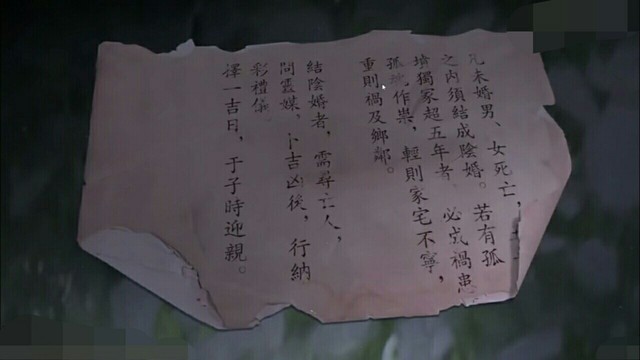 凡未婚男、女死亡,
之内須結成陰婚。若有孤
墳獨冢超五年者,必成禍患
孤作祟,輕則家宅不寧,
重則禍及鄉鄰。
結陰婚者,需尋亡人,
問靈媒,卜吉凶後,行納
彩禮儀
譯一吉日,于子時迎親。